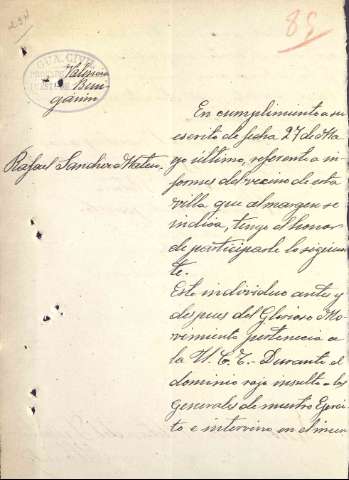 85
GUA. CIVIL
Valencia
Beni
gánim
En cumplimiento a su
escrito de fecha 27 de Ma
yo último, referente a in
Rafael Sanchis Mateu.
formes del vecino de esta
villa que al margen se
indica, tengo el honor
de participarle lo siguien
te.
Este individuo antes y
despues del Glorioso Mo
vimiento pertenecia a
la U. G. T. Durante el
dominio rojo insulto a los
generales de nuestro Ejerci
to e intervino en el incen